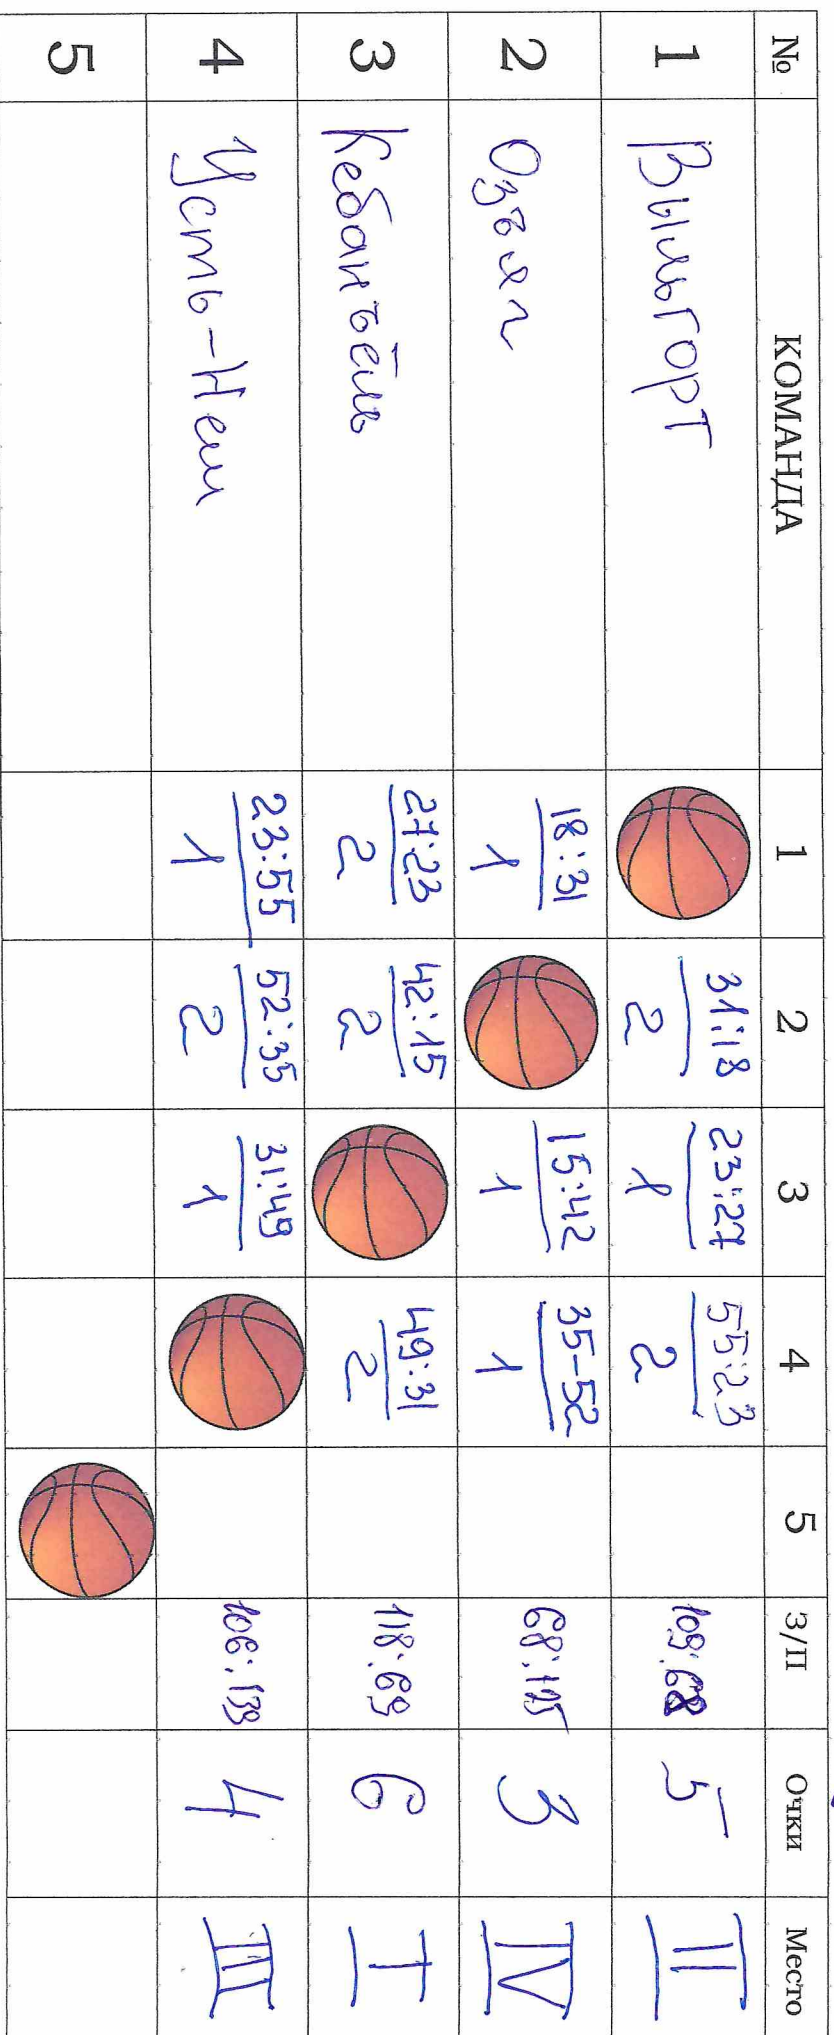 № КОМАНДА 1 2 3 4 5 З/П Очки Место
1 Выльгорт 31:18 23:27 55:23 109:68 5 II
2 1 1
2 Озъяг 18:31 15:42 35-52 68:125 3 IV
1 1 1
3 Кебанъёль 27:23 42:15 49:31 118:69 6 I
2 2 2
4 Усть-Нем 23:55 52:35 31:49 106:139 4 III
1 2 1
5